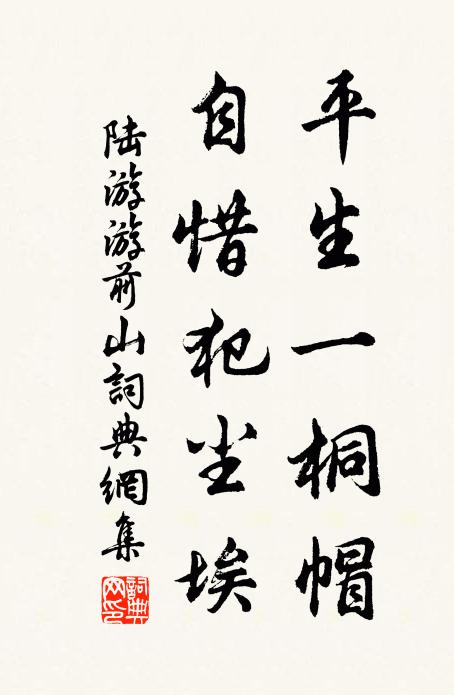 平生一桐帽
自惜犯尘埃
陆游游前山詞典網集
詞典网印